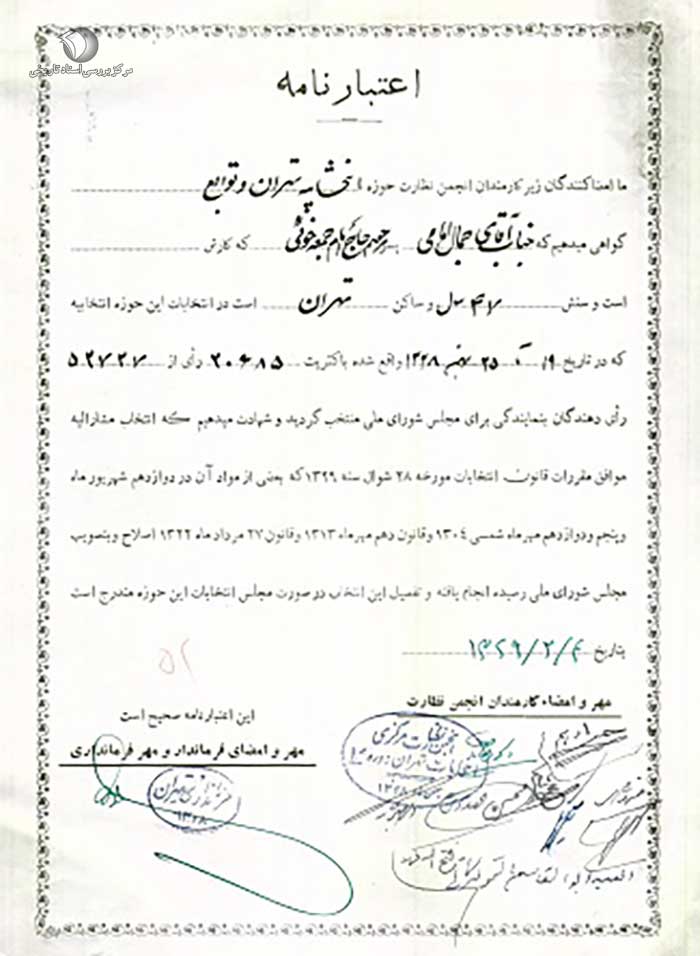 مرکز بررسی اسناد تاریخی
اعتبار نامه
ما امضا کنندگان زیر کارمندان انجمن نظارت حوزه انتخابیه تهران و توابع
گواهی میدهیم که جناب آقای جمال امامی پسر مرحوم حاج امام جمعه خوئی که کارش
است و سنش ۴۷ سال و ساکن تهران است در انتخابات این حوزه انتخابیه
که در تاریخ ۱۹ تا ۲۵ بهمن ۱۳۲۸ واقع شده باکثریت ۲۰۶۸۵ رأی از ۵۲۷۲۷
رأی دهندگان بنمایندگی برای مجلس شورای ملی منتخب گردید و شهادت میدهیم که انتخاب مشارالیه
موافق مقررات قانون انتخابات مورخه ۲۸ شوال سنه ۱۳۹۹ که بعضی از مواد آن در دوازدهم شهریور ماه
و پنجم و دوازدهم مهر ماه شمسی ۱۳۰۴ و قانون دهم مهر ماه ۱۳۱۳ و قانون ۲۷ مرداد ماه ۱۳۲۲ اصلاح و بتصویب
مجلس شورای ملی رسیده انجام یافته و تفصیل این انتخاب در صورت مجلس انتخابات این حوزه مندرج است
بتاریخ ۱۳۲۹/۲/۴
۵۲
مهر و امضاء کارمندان انجمن نظارت
این اعتبارنامه صحیح است
مهر و امضای فرماندار و مهر فرمانداری
انجمن نظارت مرکزی
انتخابات تهران
۱۳۲۸
فرمانداری تهران
۱۳۲۸